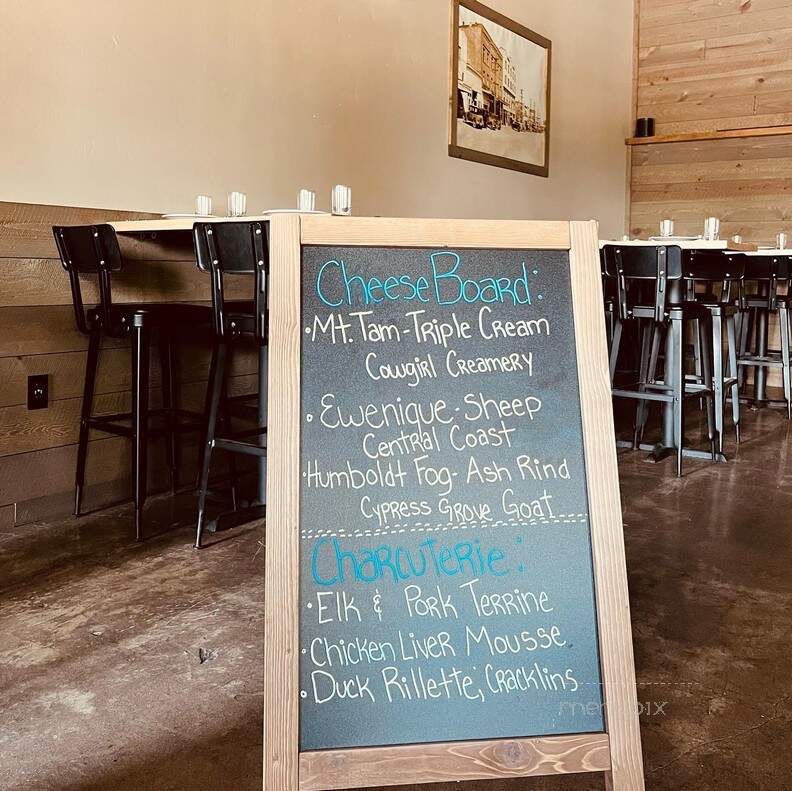 Cheese Board:
•Mt. Tam - Triple Cream
Cowgirl Creamery
• Ewenique - Sheep
Central Coast
•Humboldt Fog - Ash Rind
Cypress Grove Goat
Charcuterie:
•Elk & Pork Terrine
•Chicken Liver Mousse
•Duck Rillette, Cracklins